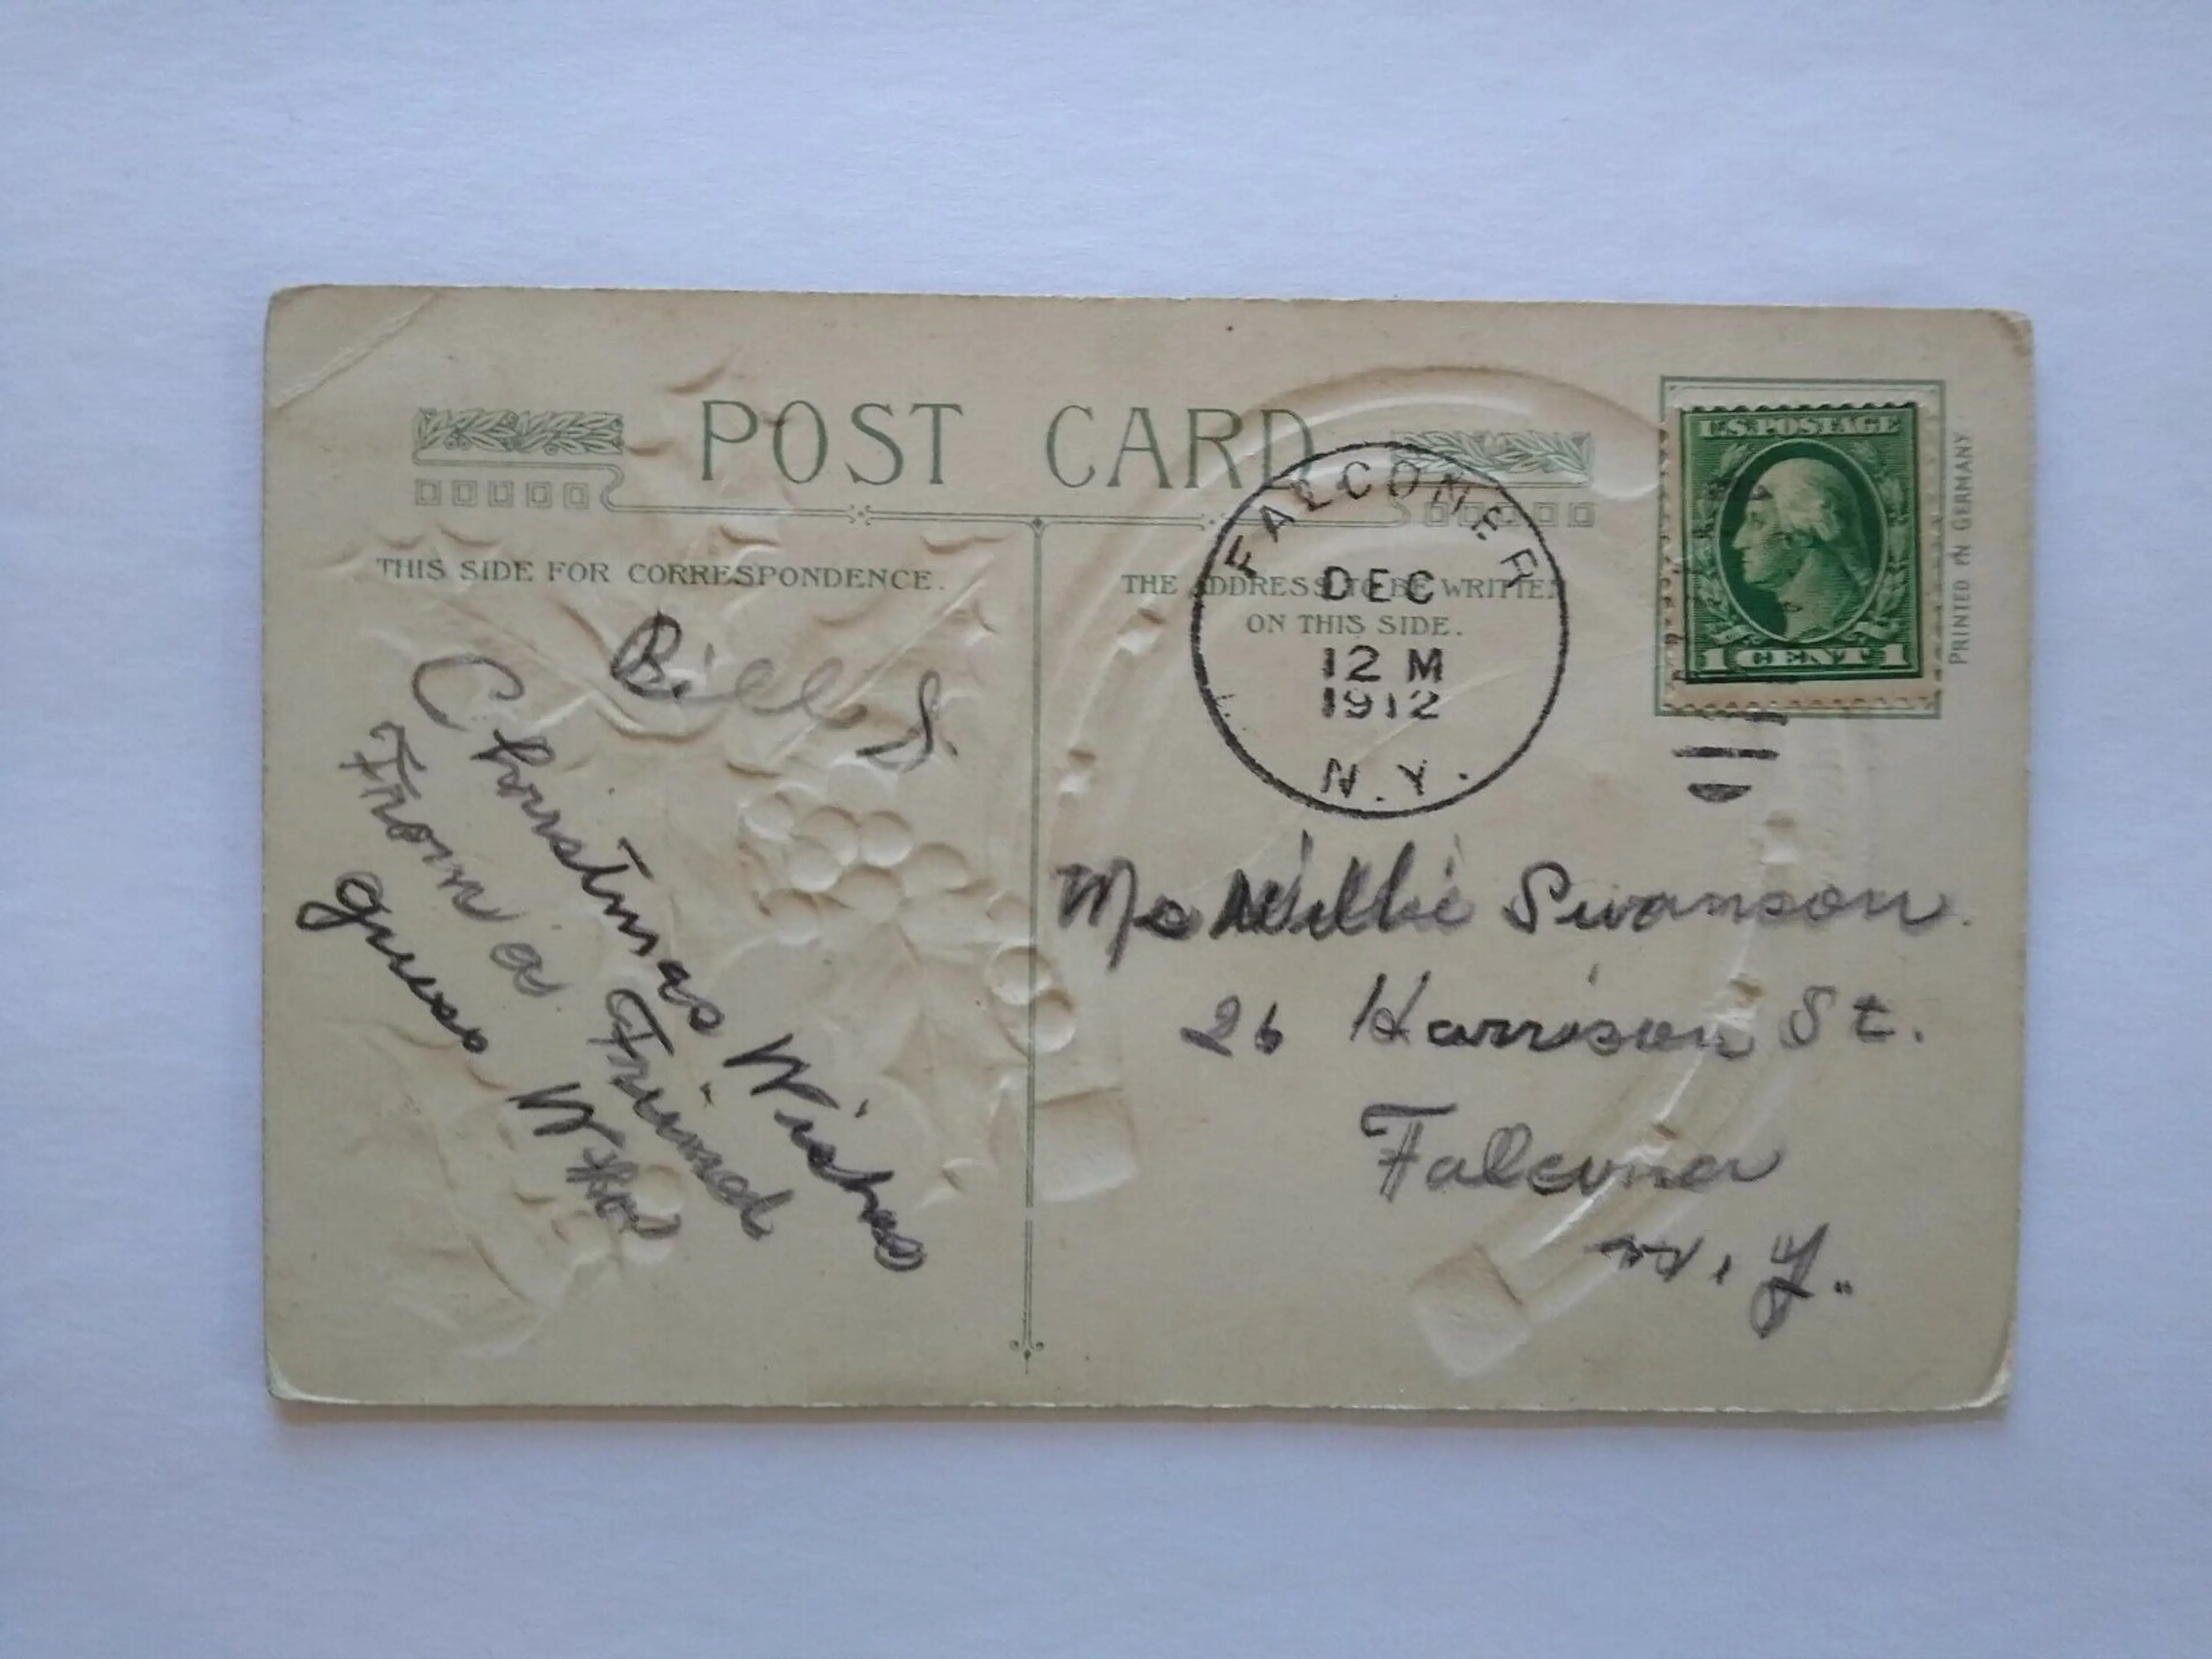 POST CARD
THIS SIDE FOR CORRESPONDENCE.
Bill S.
Christmas Wishes
From a Friend
guess Who
THE ADDRESS TO BE WRITTEN
ON THIS SIDE.
FALCONER
DEC
12 M
1912
N.Y.
U.S. POSTAGE
1 CENT 1
PRINTED IN GERMANY
Willie Swanson
26 Harrison St.
Falconer
N. Y.